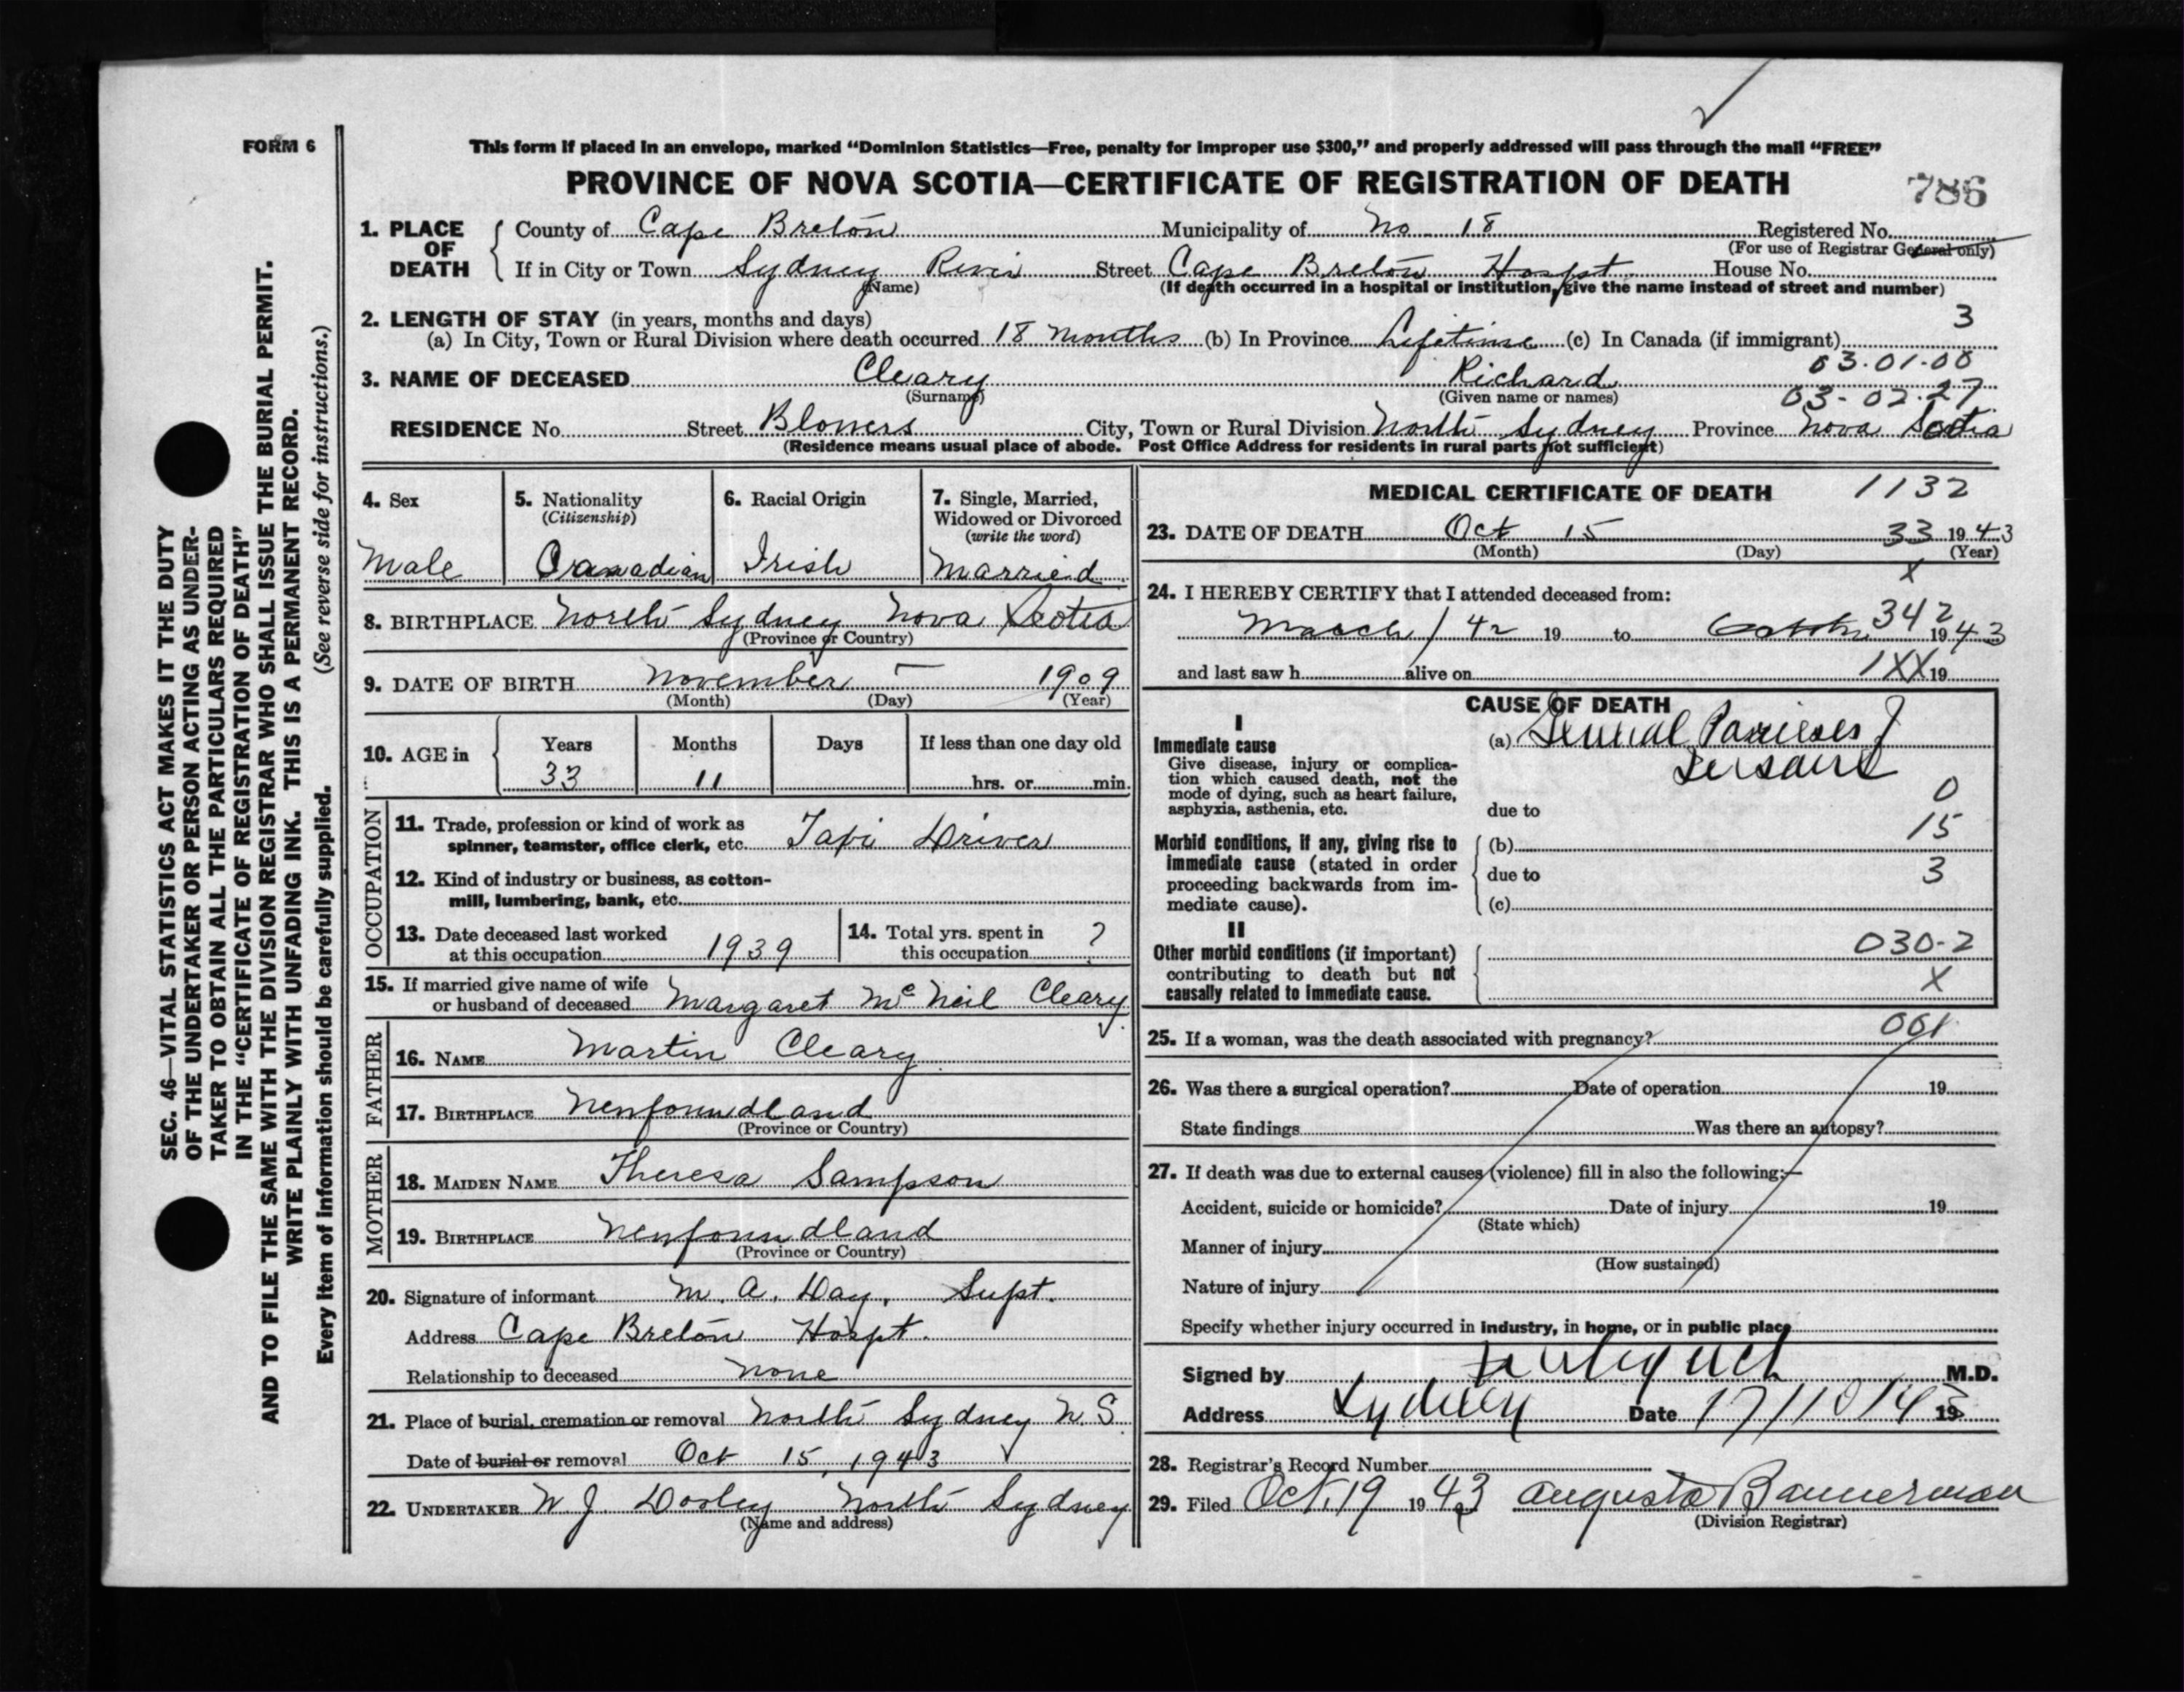 FORM 6
This form if placed in an envelope, marked “Dominion Statistics—Free, penalty for improper use $300,” and properly addressed will pass through the mail “FREE”
PROVINCE OF NOVA SCOTIA—CERTIFICATE OF REGISTRATION OF DEATH
786
1. PLACE OF DEATH
County of Cape Breton Municipality of No 18 Registered No.
(For use of Registrar General only)
If in City or Town Sydney River Street Cape Breton Hospt. House No.
(Name) (If death occurred in a hospital or institution, give the name instead of street and number)
2. LENGTH OF STAY (in years, months and days) 3
(a) In City, Town or Rural Division where death occurred 18 months (b) In Province Lifetime (c) In Canada (if immigrant)
03.01.00
3. NAME OF DECEASED Cleary Richard
(Surname) (Given name or names) 03-02.27
RESIDENCE No. Street Blowers City, Town or Rural Division North Sydney Province Nova Scotia
(Residence means usual place of abode. Post Office Address for residents in rural parts not sufficient)
4. Sex
Male
5. Nationality
(Citizenship)
Canadian
6. Racial Origin
Irish
7. Single, Married,
Widowed or Divorced
(write the word)
Married
8. BIRTHPLACE North Sydney Nova Scotia
(Province or Country)
9. DATE OF BIRTH November — 1909
(Month) (Day) (Year)
10. AGE in
Years Months Days If less than one day old
33 11 hrs. or min.
OCCUPATION
11. Trade, profession or kind of work as
spinner, teamster, office clerk, etc. Taxi Driver
12. Kind of industry or business, as cotton-
mill, lumbering, bank, etc.
13. Date deceased last worked
at this occupation 1939
14. Total yrs. spent in
this occupation ?
15. If married give name of wife
or husband of deceased Margaret McNeil Cleary
FATHER
16. NAME Martin Cleary
17. BIRTHPLACE Newfoundland
(Province or Country)
MOTHER
18. MAIDEN NAME Theresa Sampson
19. BIRTHPLACE Newfoundland
(Province or Country)
20. Signature of informant M. A. Day, Supt.
Address Cape Breton Hospt.
Relationship to deceased None
21. Place of burial, cremation or removal North Sydney N.S
Date of burial or removal Oct 15, 1943
22. UNDERTAKER W J Dooley North Sydney
(Name and address)
MEDICAL CERTIFICATE OF DEATH 1132
23. DATE OF DEATH Oct 15 33 1943
(Month) (Day) (Year)
X
24. I HEREBY CERTIFY that I attended deceased from:
342
March / 42 19 to 1943
and last saw h alive on 1XX 19
CAUSE OF DEATH
I
Immediate cause
Give disease, injury or complica-
tion which caused death, not the
mode of dying, such as heart failure,
asphyxia, asthenia, etc.
(a) General
due to
0
15
Morbid conditions, if any, giving rise to
immediate cause (stated in order
proceeding backwards from im-
mediate cause).
(b)
due to 3
(c)
II
Other morbid conditions (if important)
contributing to death but not
causally related to immediate cause.
030-2
X
25. If a woman, was the death associated with pregnancy? 061
26. Was there a surgical operation? Date of operation 19
State findings Was there an autopsy?
27. If death was due to external causes (violence) fill in also the following:—
Accident, suicide or homicide? Date of injury 19
(State which)
Manner of injury
(How sustained)
Nature of injury
Specify whether injury occurred in industry, in home, or in public place
Signed by M.D.
Address Sydney Date 17/10/43 19
28. Registrar's Record Number
29. Filed Oct. 19 1943 Augusta Bannerman
(Division Registrar)
SEC. 46—VITAL STATISTICS ACT MAKES IT THE DUTY
OF THE UNDERTAKER OR PERSON ACTING AS UNDER-
TAKER TO OBTAIN ALL THE PARTICULARS REQUIRED
IN THE “CERTIFICATE OF REGISTRATION OF DEATH”
AND TO FILE THE SAME WITH THE DIVISION REGISTRAR WHO SHALL ISSUE THE BURIAL PERMIT.
WRITE PLAINLY WITH UNFADING INK. THIS IS A PERMANENT RECORD.
Every item of information should be carefully supplied. (See reverse side for instructions.)